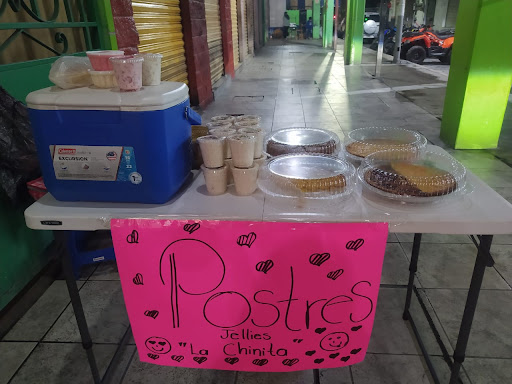 Coleman
EXCURSION
Postres
Jellies
"La Chinita"